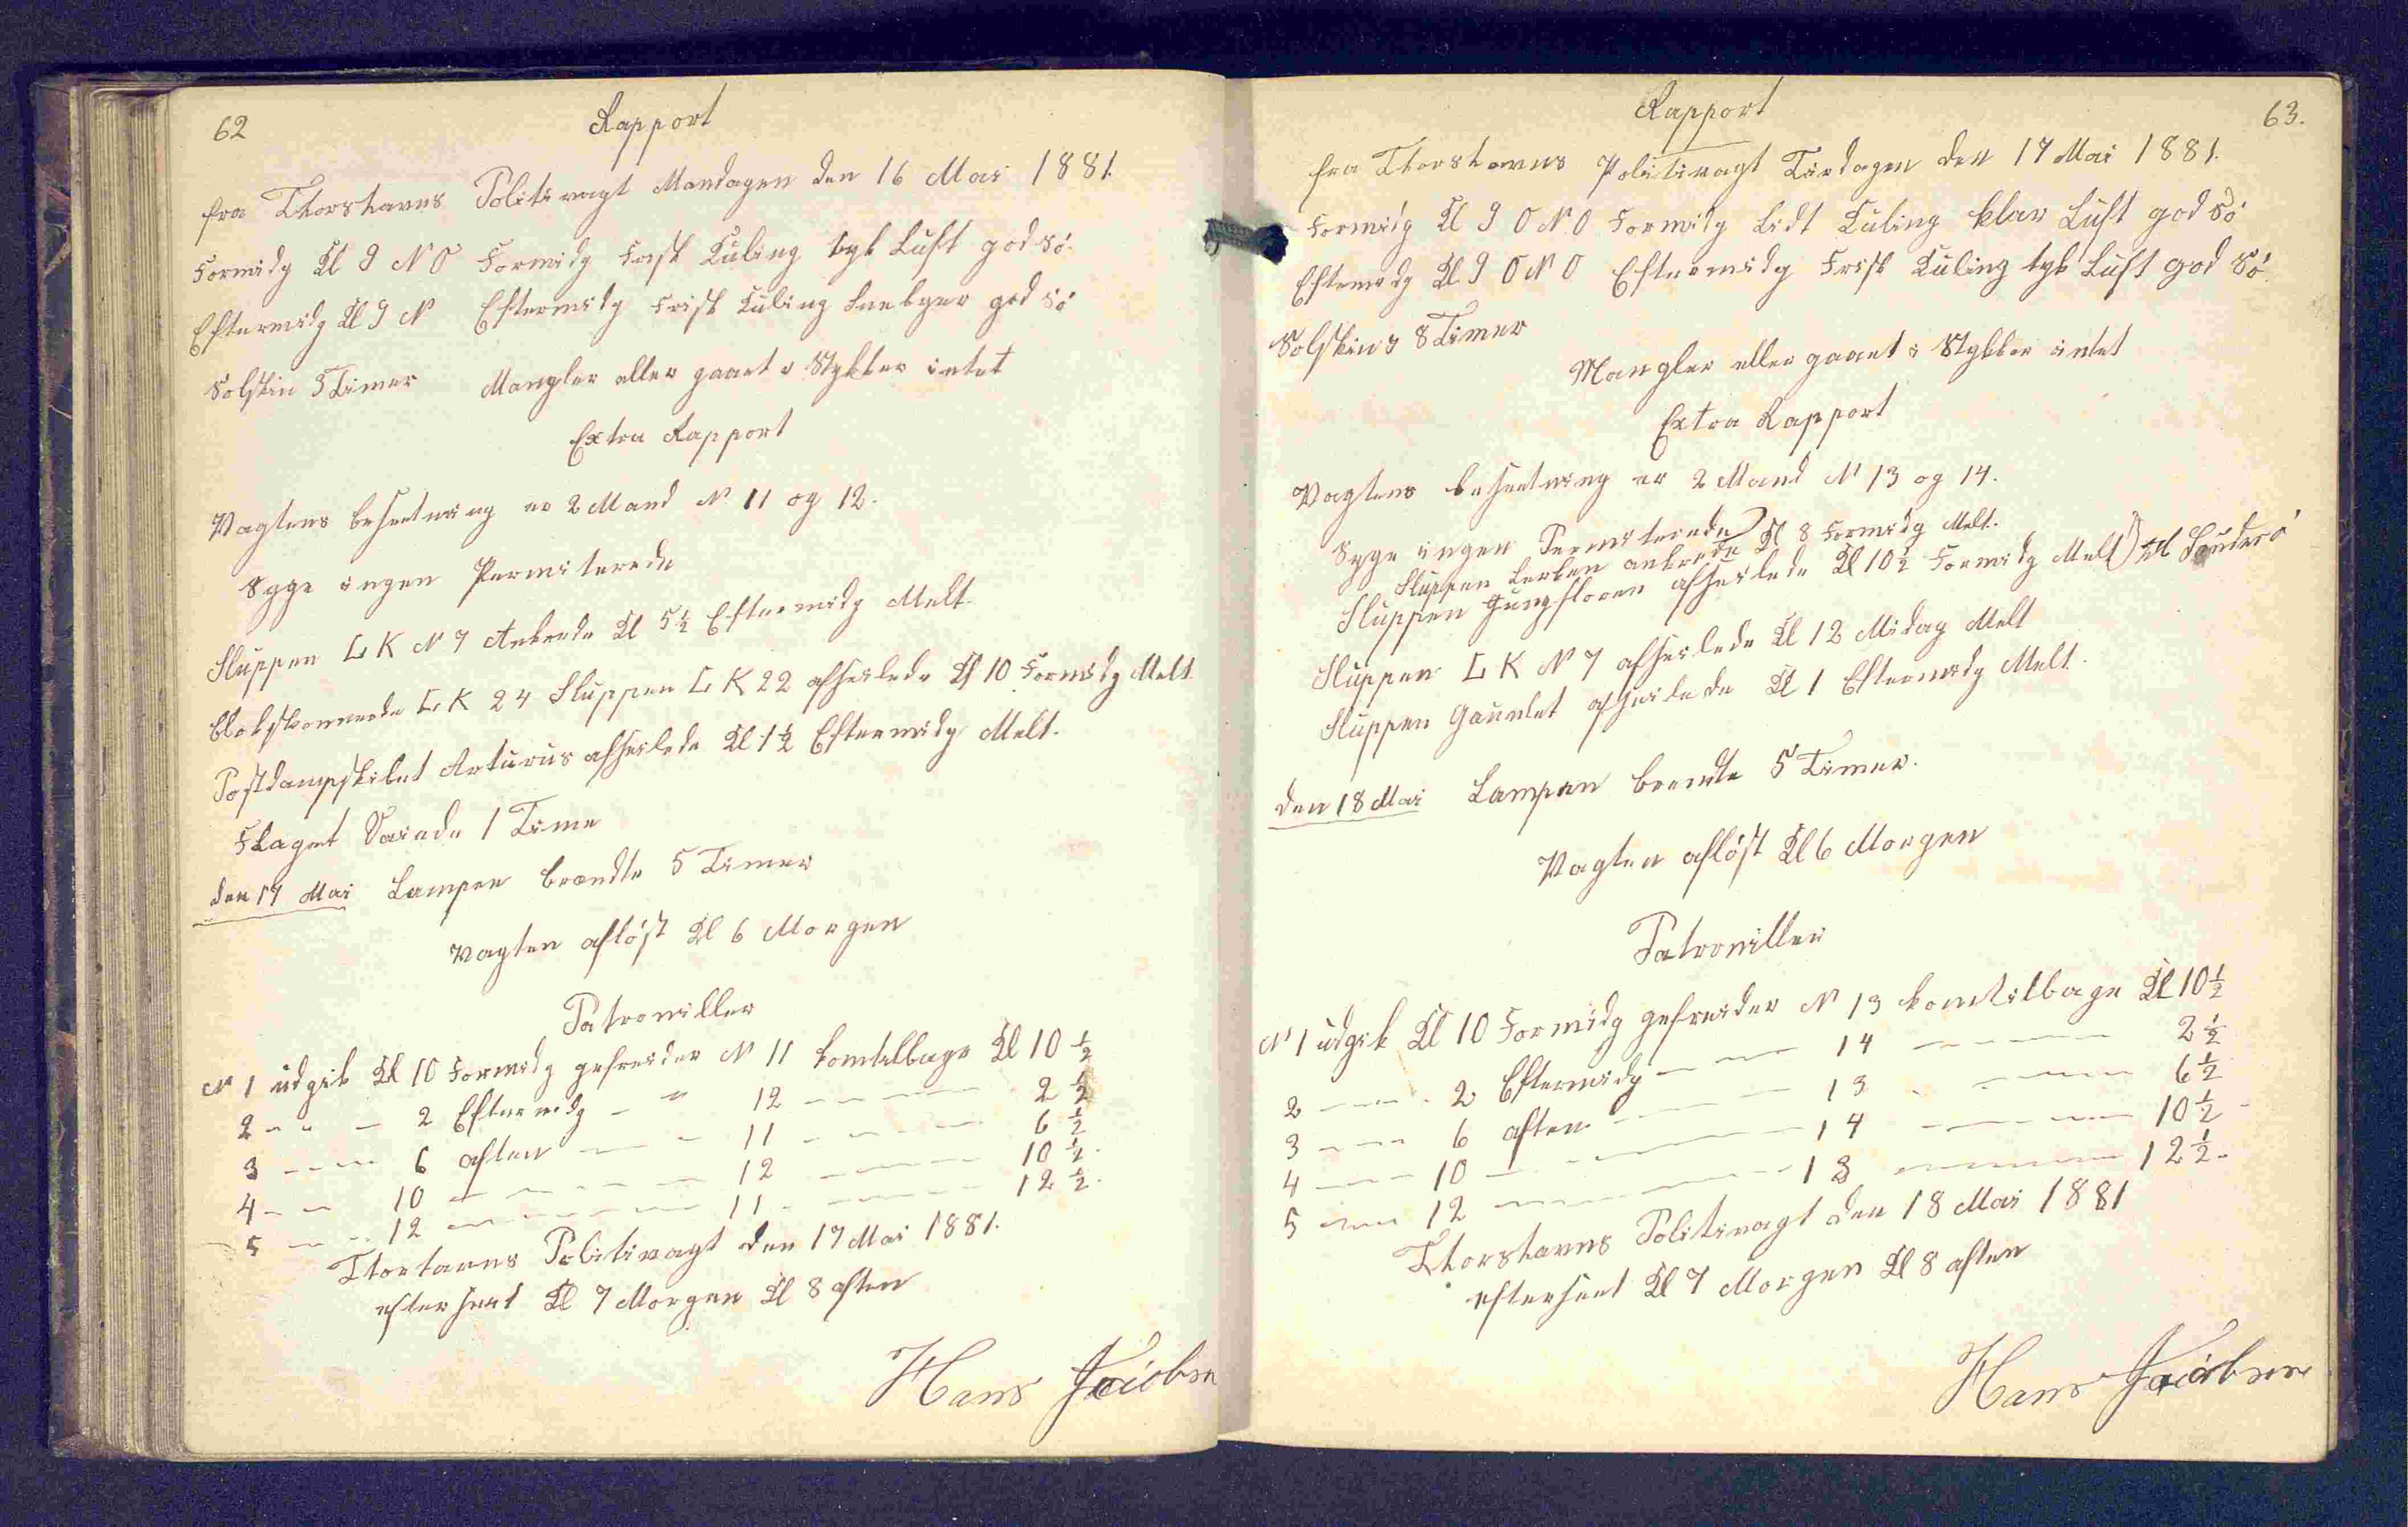 62
Rapport
fra Thorshavns Politivagt Mandagen den 16 Mai 1881.
Formidg Kl 9 N O Formidg Frisk Kuling tyk Luft god Sö.
Eftermidg Kl 9 N Eftermidg Frisk Kuling Sneebyer god Sö
Solskin 5 Timer Mangler eller gaaet i Stykker intet
Extra Rapport
Vagtens besætning er 2 Mand N 11 og 12.
Syge ingen Permiterede
Sluppen L K N 7 Ankrede Kl 5½ Eftermidg Melt.
L K 24 Sluppen L K 22 afseilede Kl 10 Formidg Melt
Postdampskibet Arturus afseilede Kl 1½ Eftermidg Melt.
Flaget Vaiede 1 Time
den 17 Mai Lampen brændte 5 Timer
Vagten aflöst Kl 6 Morgen
Patroniller
N 1 udgik Kl 10 Formidg gefreider N 11 komtilbage Kl 10½
2 - - - 2 Eftermidg - " 12 - - - - 2½
3 - - - 6 aften - - - 11 - - - - 6½
4 - - 10 - - - - - - 12 - - - - 10½.
5 - - - 12 - - - - - - 11 - - - - - 12½.
Thortavns Politivagt den 17 Mai 1881.
efterseet Kl 7 Morgen Kl 8 aften
Hans Jacobsen
Rapport
63.
fra Thorshavns Politivagt Tirdagen den 17 Mai 1881.
Formidg Kl 9 O N O Formidg Lidt Kuling klar Luft god Sö
Eftermidg Kl 9 O N O Eftermidg Frisk Kuling tyk Luft god Sö.
Solskin 8 Timer
Mangler eller gaaet i Stykker intet
Extra Rapport
Vagtens besætning er 2 Mand N 13 og 14.
Syge ingen Permiterede
Sluppen Lerken ankrede Kl 8 Formidg Melt.
Sluppen Jungfloren afseilede Kl 10½ Formidg Melt til Suderö
Sluppen L K N 7 afseilede Kl 12 Midag Melt
Sluppen Gauntlet afseilede Kl 1 Eftermidg Melt.
den 18 Mai Lampen brendte 5 Timer.
Vagten aflöst Kl 6 Morgen
Patroniller
N 1 udgik Kl 10 Formidg gefreider N 13 komtilbage Kl 10½
2 - - - - 2 Eftermidg - - - 14 - - - - 2½
3 - - - 6 aften - - - - 13 - - - - 6½
4 - - - 10 - - - - - - 14 - - - - 10½
5 - - - 12 - - - - - - 13 - - - - 12½.
Thorshavns Politivagt den 18 Mai 1881
efterseet Kl 7 Morgen Kl 8 aften
Hans Jacobsen